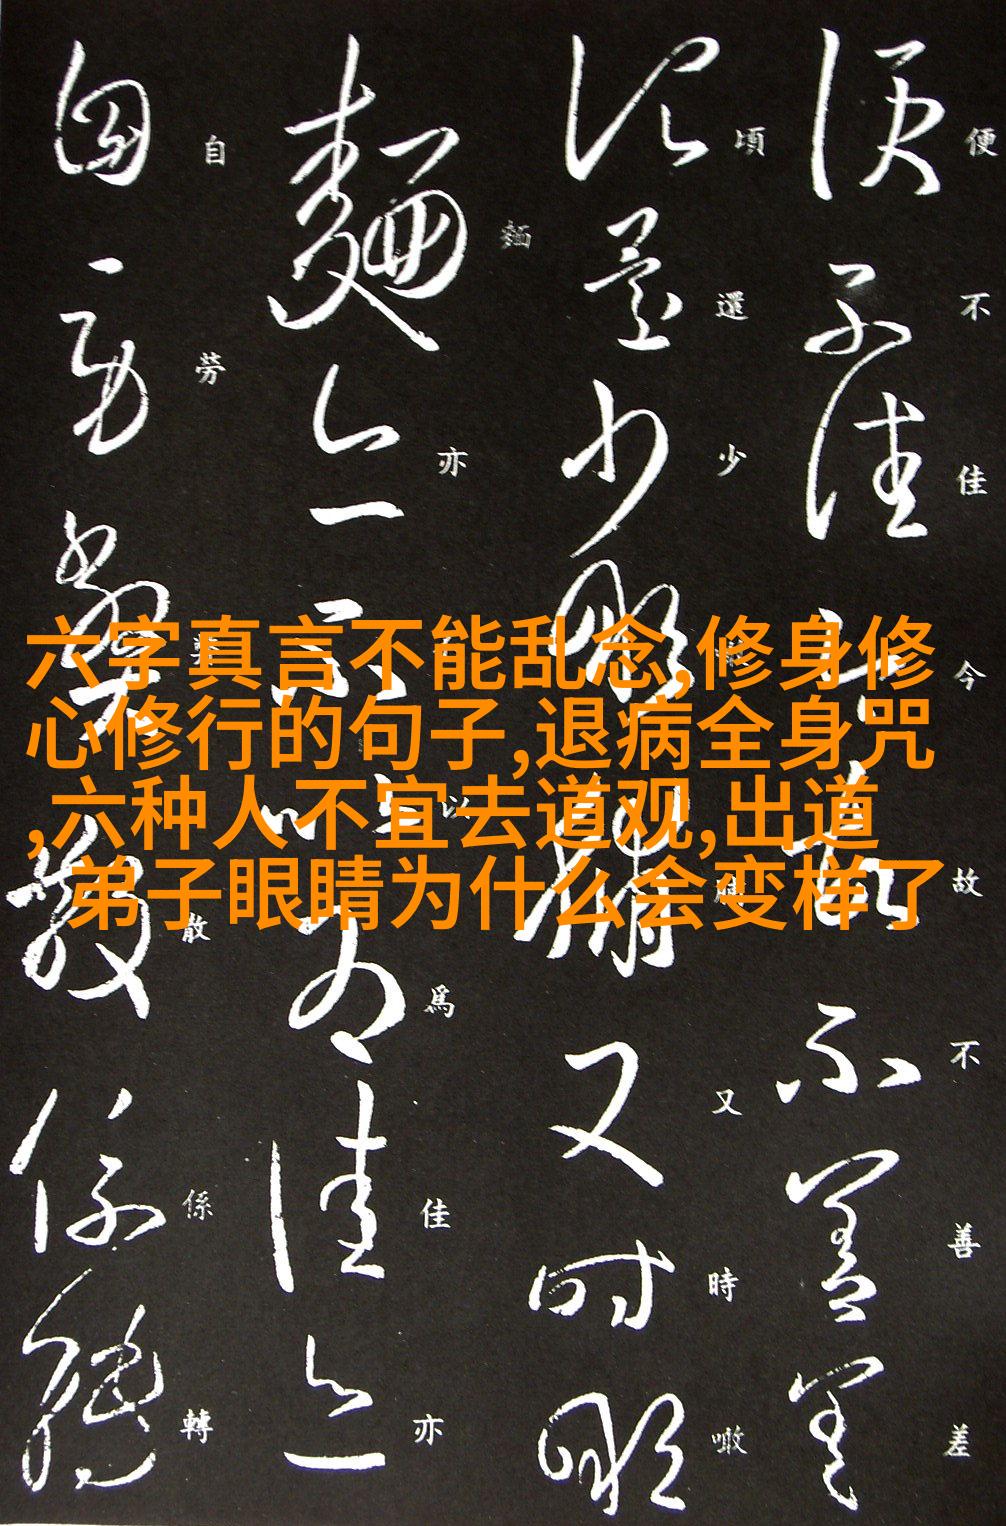 便不佳今故不善差
頃還少噉脯又時噉
麵亦不以爲佳亦
自勞弊散係轉
六字真言不能乱念,修身修
心修行的句子,退病全身咒
,六种人不宜去道观,出道
弟子眼睛为什么会变样了